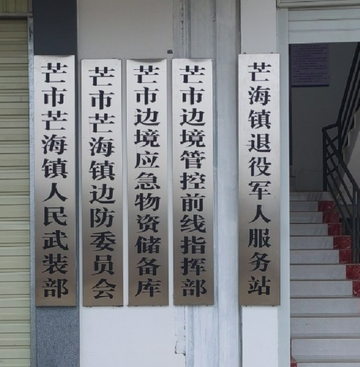 芒市芒海镇人民武装部
芒市芒海镇边防委员会
芒市边境应急物资储备库
芒市边境管控前线指挥部
芒海镇退役军人服务站